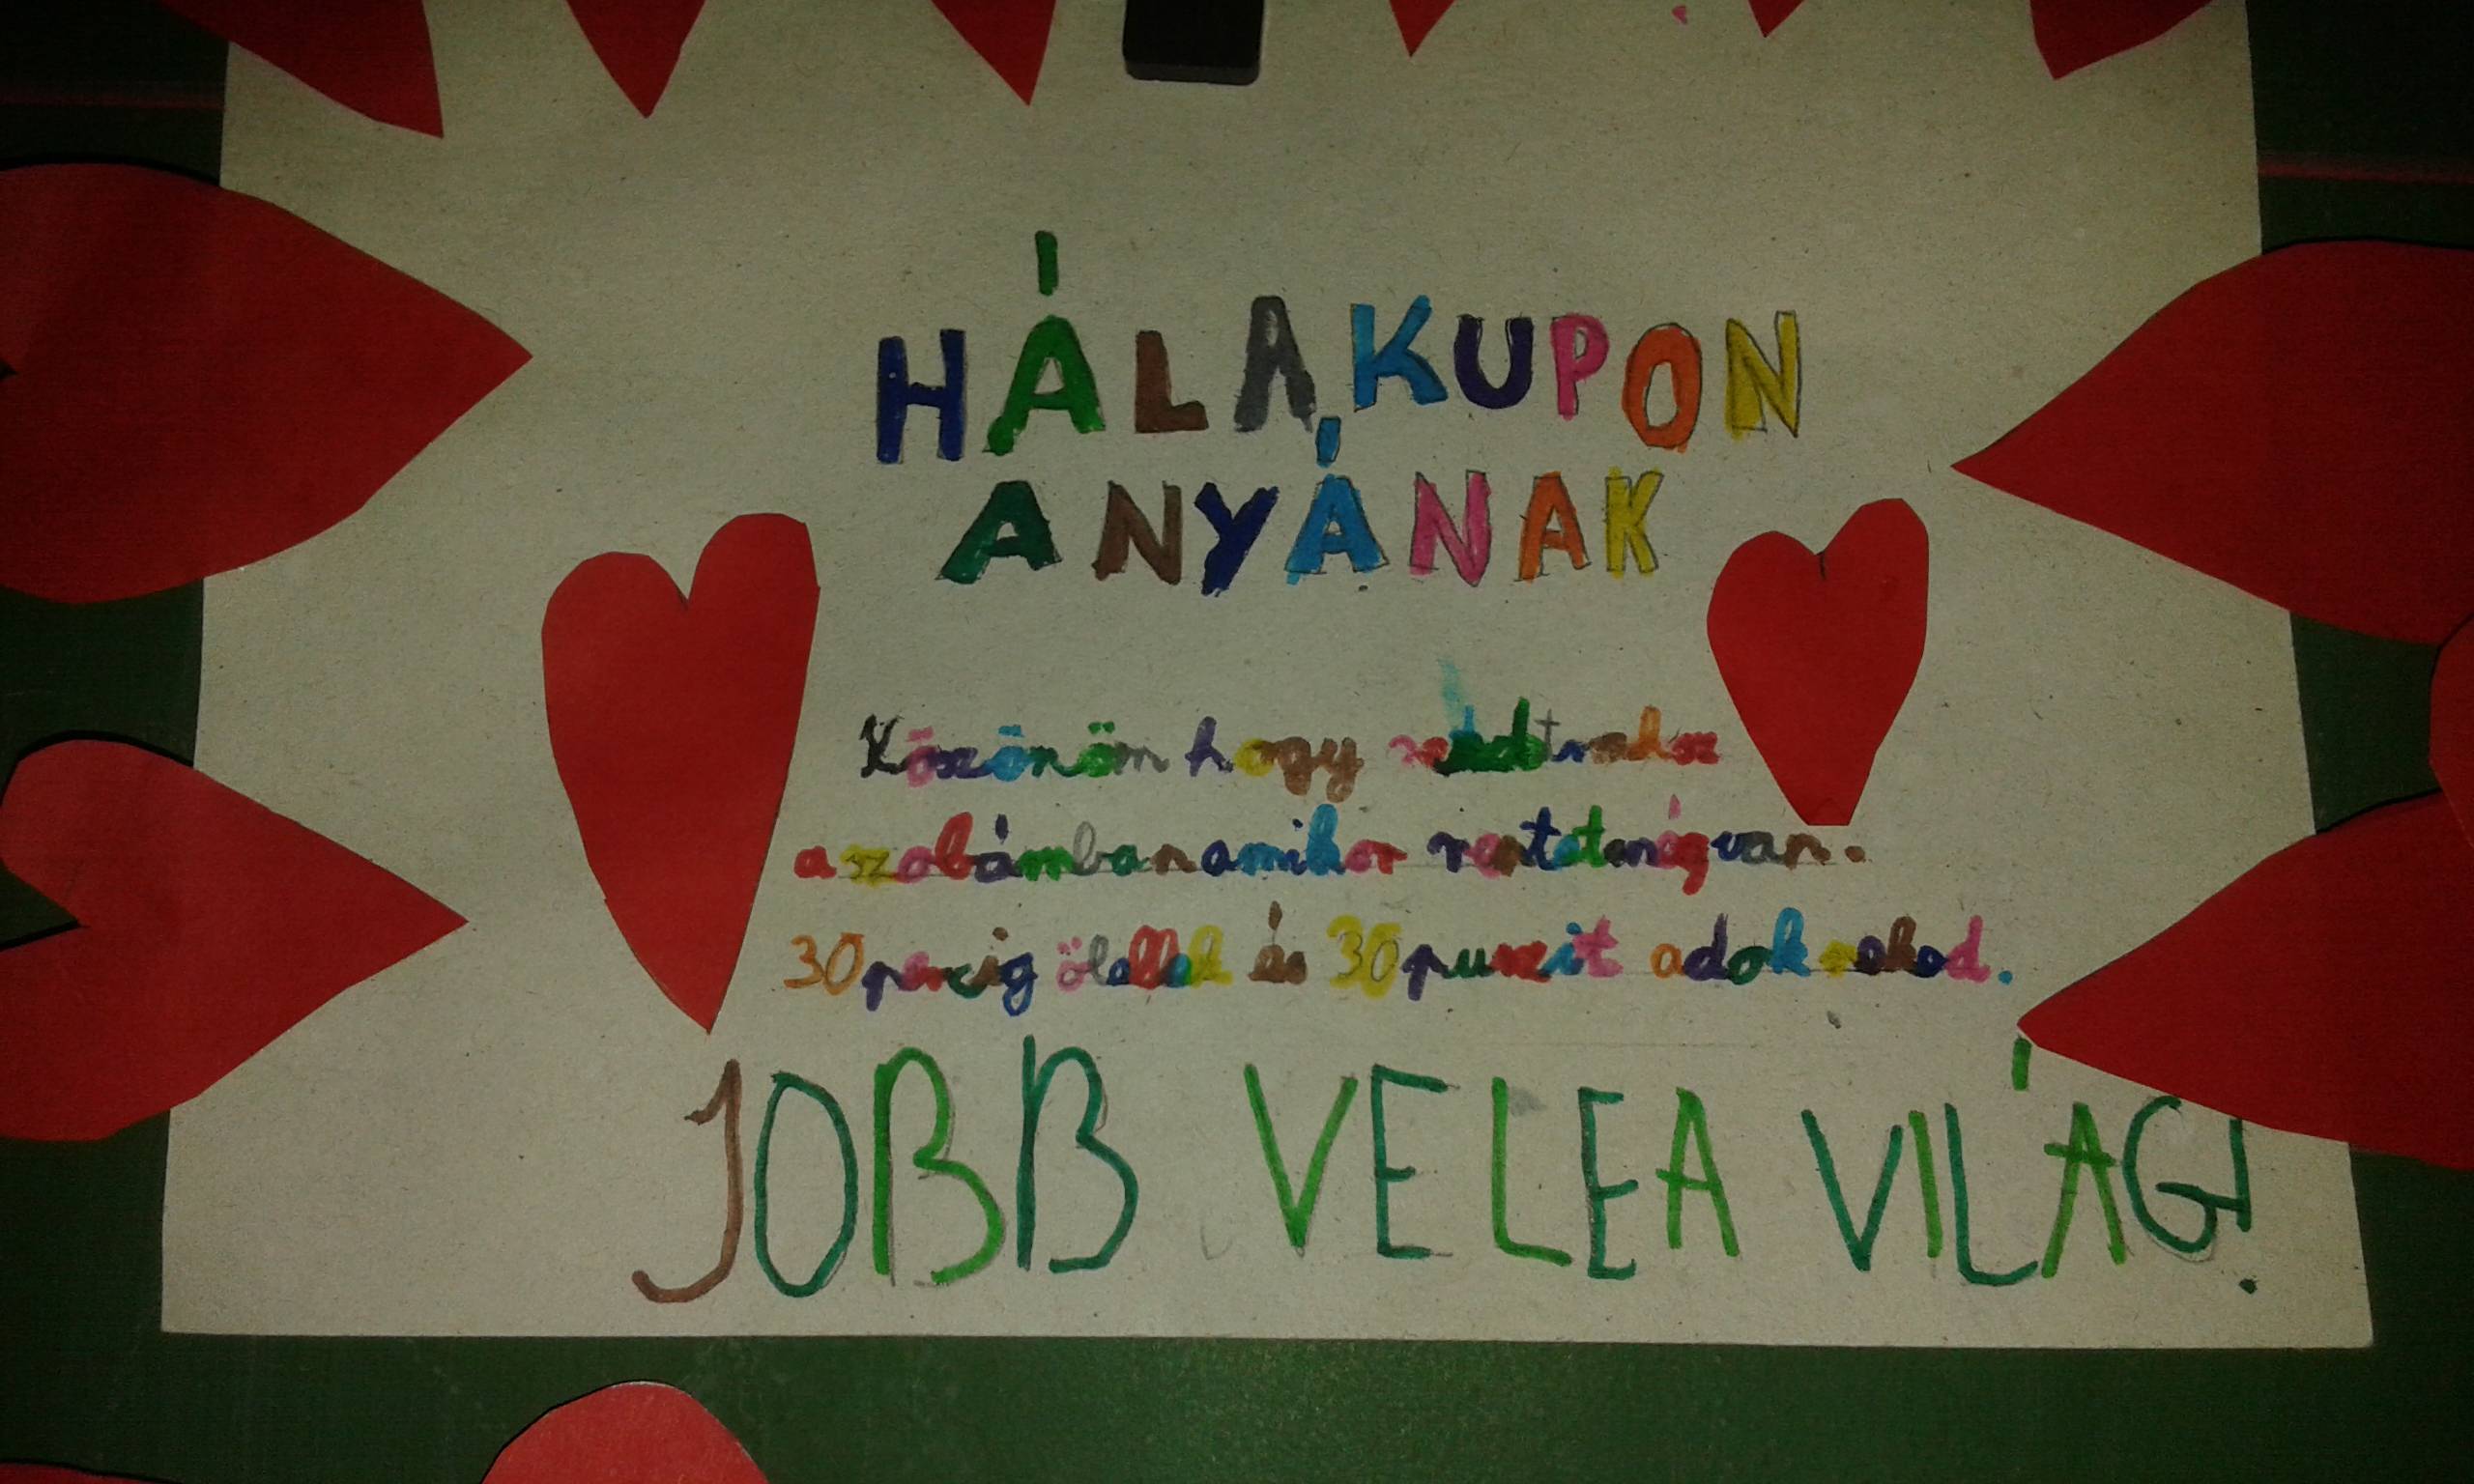 HÁLAKUPON
ANYÁNAK
Köszönöm hogy
a szobámban amikor van.
30 percig ölellek és 30 puszit adok neked.
JOBB VELE A VILÁG!